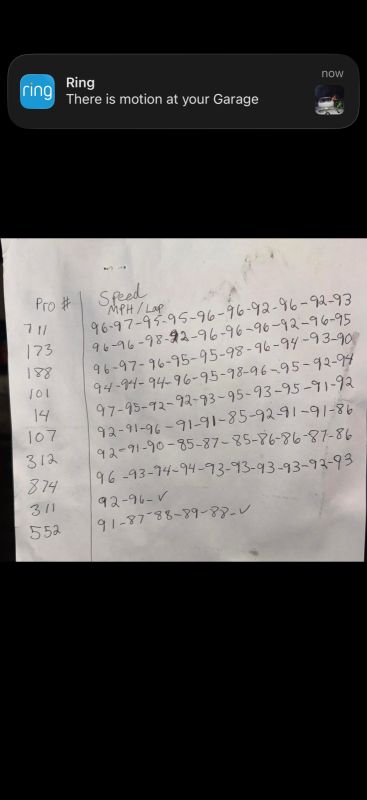 now
ring
Ring
There is motion at your Garage
Pro # Speed
MPH / Lap
711 96-97-95-95-96-96-92-96-92-93
173 96-96-98-92-96-96-96-92-96-95
188 96-97-96-95-95-98-96-94-93-90
101 94-94-94-96-95-98-96-95-92-94
14 97-95-92-92-93-95-93-95-91-92
107 92-91-96-91-91-85-92-91-91-86
312 92-91-90-85-87-85-86-86-87-86
874 96-93-94-94-93-93-93-93-92-93
311 92-96-✓
552 91-87-88-89-88-✓